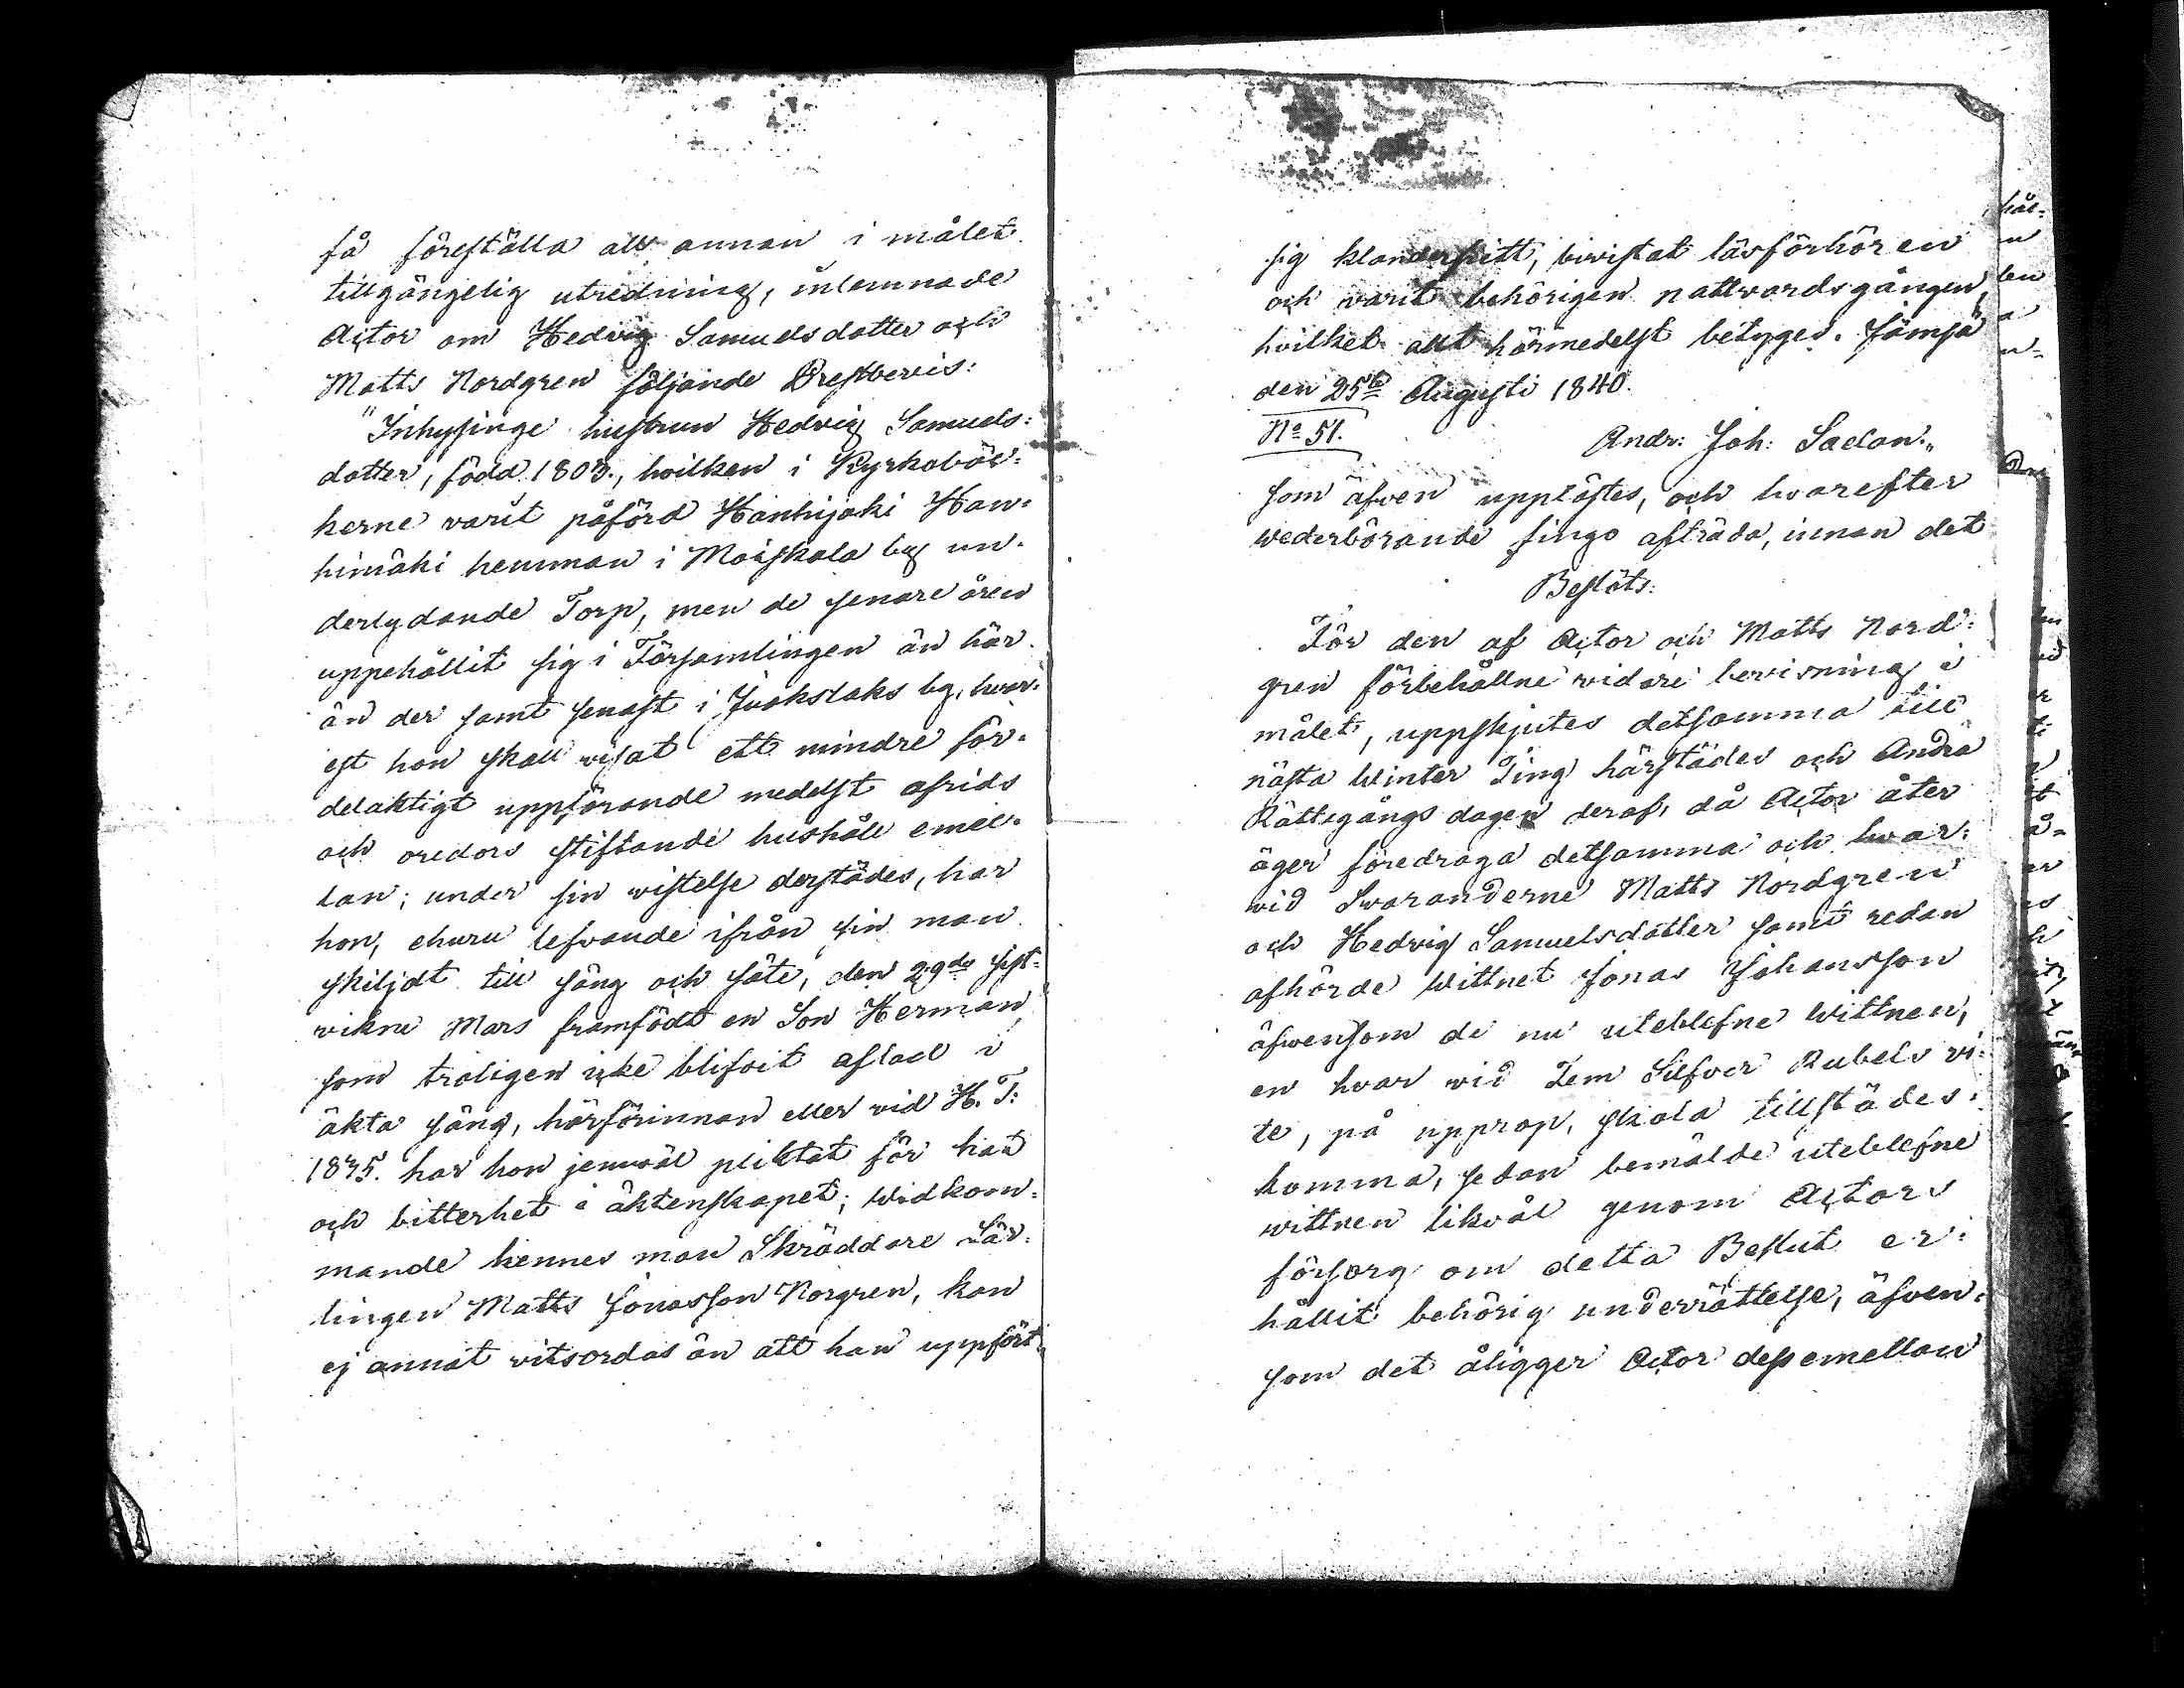 få föreställa all annan i målet
tillgängelig utredning, inlemnade
Actor om Hedvig Samuelsdotter och
Matts Nordgren följande Prestbevis:
"Inhysinge hustrun Hedvig Samuels-
dotter, född 1803., hvilken i Kyrkoböc-
kerne varit påförd Hanhijoki Han-
himäki hemman i Moiskala by un-
derlydande Torp, men de senare åren
uppehållit sig i Församlingen än här
än der samt senast i Juokslaks by, hvar-
est hon skall visat ett mindre för-
delaktigt uppförande medelst afvids
och oredors stiftande hushåll emel-
lan; under sin vistelse derstädes, har
hon, ehuru lefvande ifrån sin man
skiljdt till säng och säte, den 29de sist-
vikne Mars framfödt en Son Herman,
som troligen icke blifvit aflad i
äkta säng, härförinnan eller vid H. T:
1835. har hon jemväl pliktat för hat
och bitterhet i äktenskapet; Widkom-
mande hennes man Skräddare Lär-
lingen Matts Jonasson Norgren, kan
ej annat vitsordas än att han uppfört
sig klanderfritt, bivistat läsförhören
och varit behörigen nattvardsgången,
hvilket allt härmedelst betyges. Jämsä
den 25te Augusti 1840.
No 51.
Andr: Joh: Sadan.,
som äfven upplästes, och hvarefter
wederbörande fingo afträda, innan det
Beslöts:
För den af Actor och Matts Nord-
gren förbehållne vidare bevisning i
målet, uppskjutes detsamma till
nästa Winter Ting härstädes och Andra
Rättegångs dagen deraf, då Actor åter
äger föredraga detsamma och hvar-
vid Svaranderne Matts Nordgren
och Hedvig Samuelsdotter samt redan
afhörde Wittnet Jonas Johansson
äfvensom de nu uteblefne Wittnen,
en hvar vid Fem Silfver Rubels vi-
te, på upprop, skola tillstädes-
komma, sedan bemälde uteblefne
wittnen likväl genom Actors
försorg om detta Beslut er-
hållit behörig underrättelse, äfven-
som det åligger Actor dess emellan